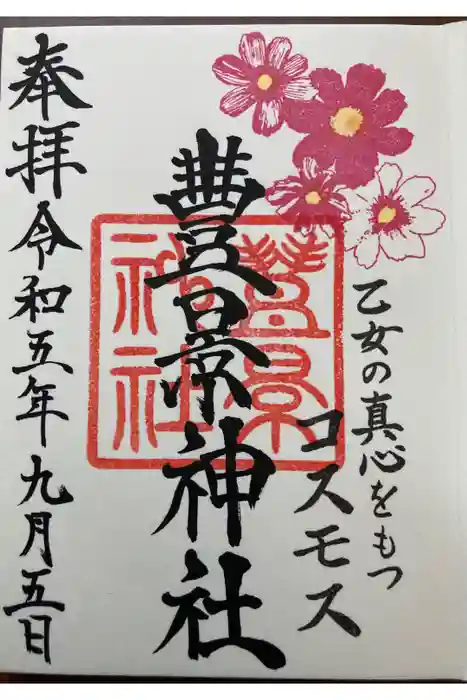 乙女の真心をもつ
コスモス
豊景神社
豊景神社
奉拝 令和五年九月五日